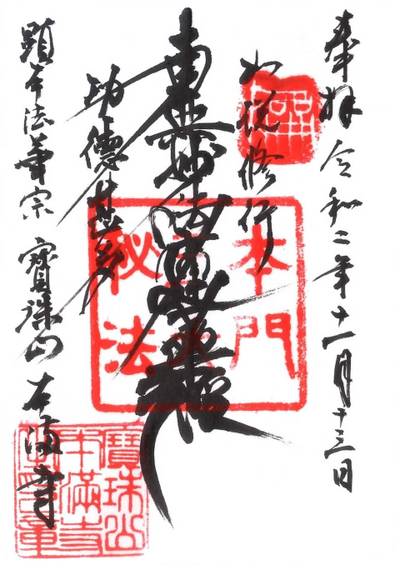 奉拝 令和二年十一月十三日
如説修行
南無妙法蓮華経
功徳甚多
顕本法華宗 寶珠山 本満寺
本門
秘法
寶珠山
本満寺